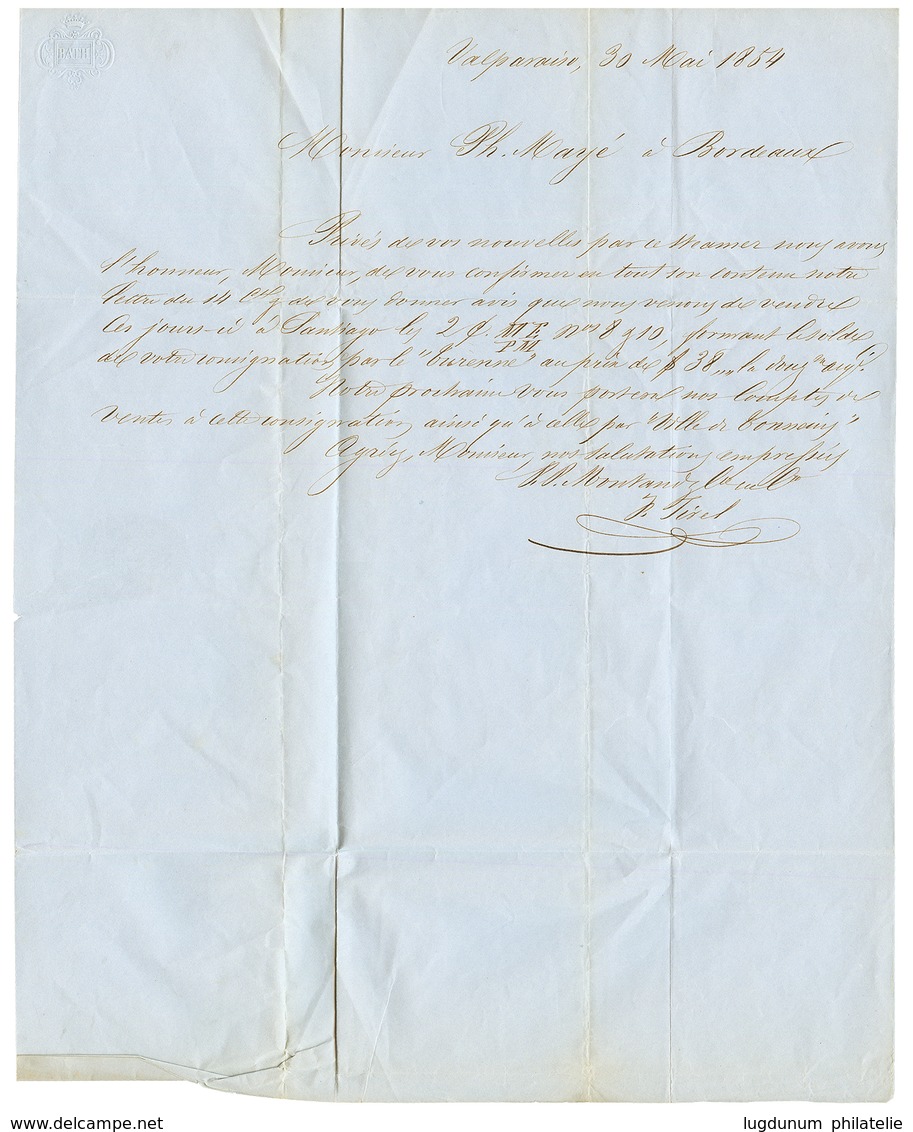 BATH
Valparaiso, 30 Mai 1854
Monsieur Ph. Mayé à Bordeaux
Privés de vos nouvelles par ce steamer nous avons
l'honneur, Monsieur, de vous confirmer en tout son contenu notre
lettre du 14 Ct & de vous donner avis que nous venons de vendre
ces jours-ci à Santiago les 2 C/ nos 8 & 10, formant le solde
de votre consignation par le "Turenne" au prix de $ 38 la douz
Notre prochaine vous portera nos Comptes de
ventes à cette consignation ainsi qu'à celle par "Ville de Tonneins"
Agréez, Monsieur, nos salutations empressées
PP. Montané & Ce
F. Tirel
lugdunum philatelie